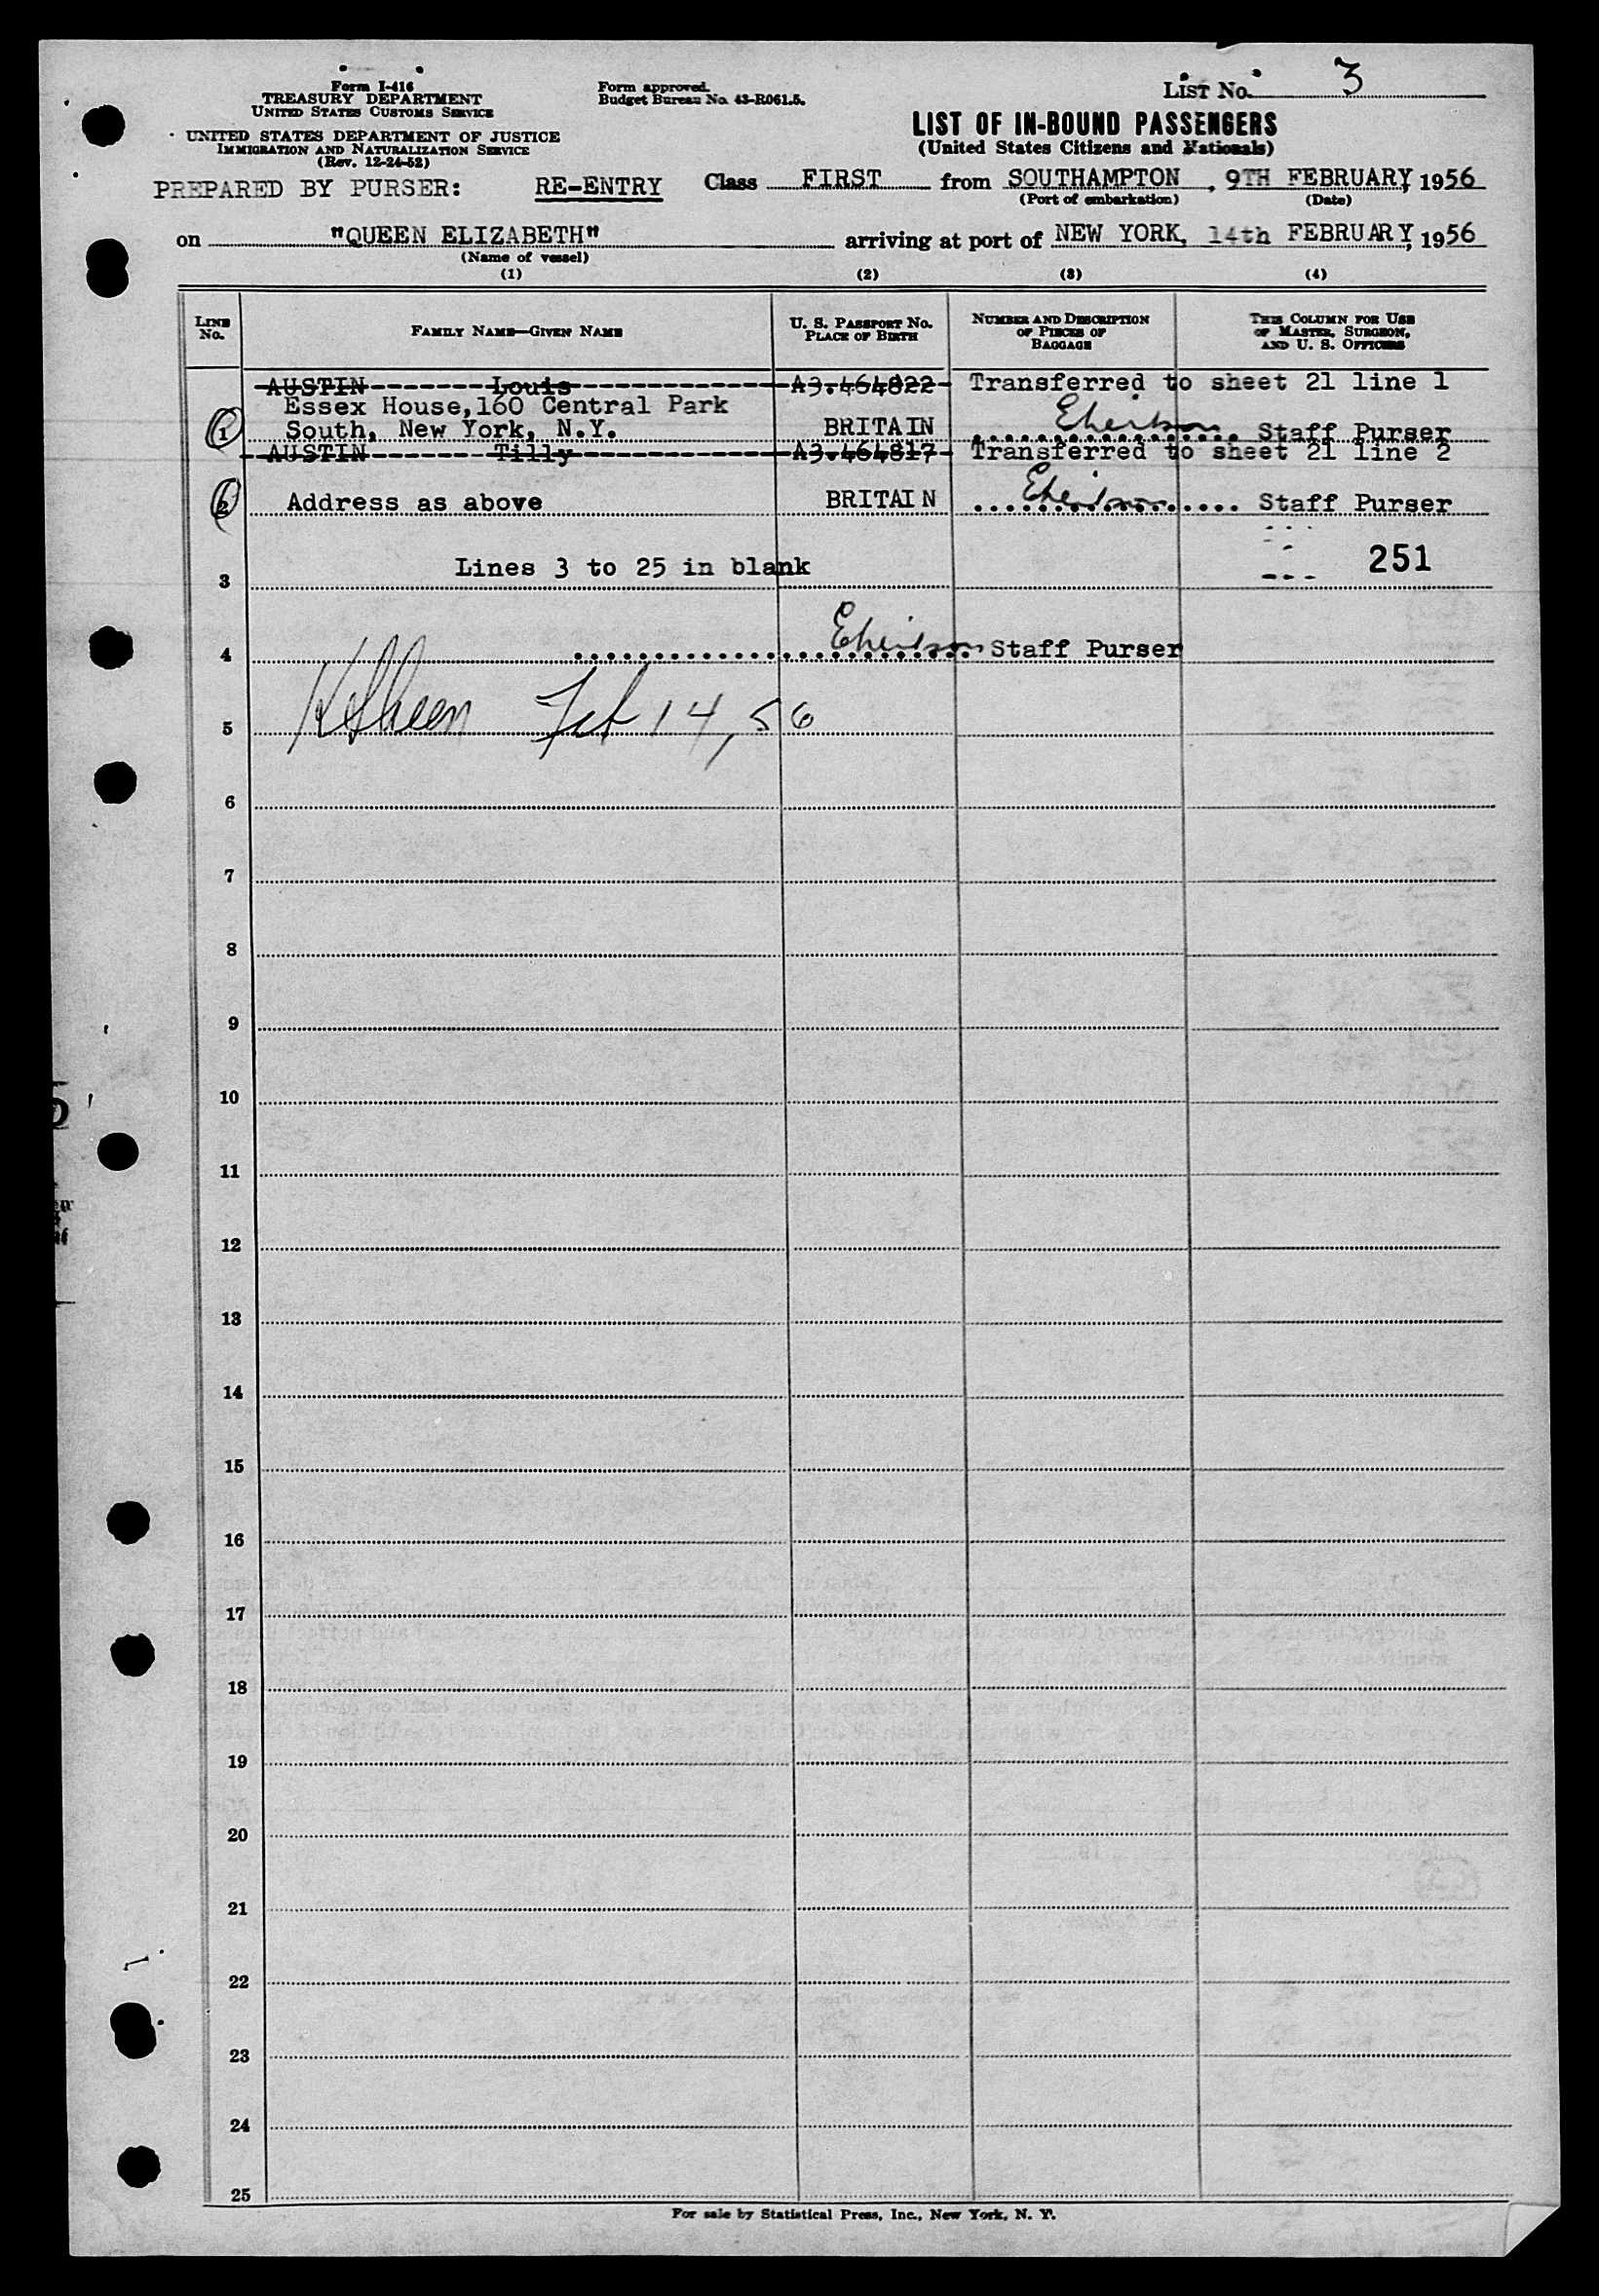 Form I-416
TREASURY DEPARTMENT
UNITED STATES CUSTOMS SERVICE
UNITED STATES DEPARTMENT OF JUSTICE
IMMIGRATION AND NATURALIZATION SERVICE
(Rev. 12-24-52)
Form approved.
Budget Bureau No. 43-R061.5.
LIST No. 3
LIST OF IN-BOUND PASSENGERS
(United States Citizens and Nationals)
PREPARED BY PURSER: RE-ENTRY Class FIRST from SOUTHAMPTON, 9TH FEBRUARY, 1956
(Port of embarkation) (Date)
on "QUEEN ELIZABETH" arriving at port of NEW YORK, 14th FEBRUARY, 1956
(Name of vessel)
(1) (2) (3) (4)
LINE No. FAMILY NAME—GIVEN NAME U. S. PASSPORT No. PLACE OF BIRTH NUMBER AND DESCRIPTION OF PIECES OF BAGGAGE THIS COLUMN FOR USE OF MASTER, SURGEON, AND U. S. OFFICERS
AUSTIN Louis A3.464822 Transferred to sheet 21 line 1
Essex House, 160 Central Park
1 South, New York, N.Y. BRITAIN Staff Purser
AUSTIN Tilly A3.464817 Transferred to sheet 21 line 2
2 Address as above BRITAIN Staff Purser
251
3 Lines 3 to 25 in blank
4 Staff Purser
5 Feb 14, 56
6
7
8
9
10
11
12
13
14
15
16
17
18
19
20
21
22
23
24
25
For sale by Statistical Press, Inc., New York, N. Y.